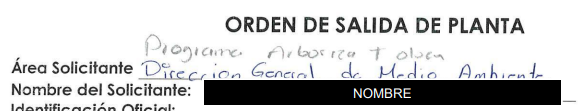 ORDEN DE SALIDA DE PLANTA
Programa Arboriza T
Área Solicitante Dirección General de Medio Ambiente
Nombre del Solicitante: NOMBRE
Identificación Oficial: